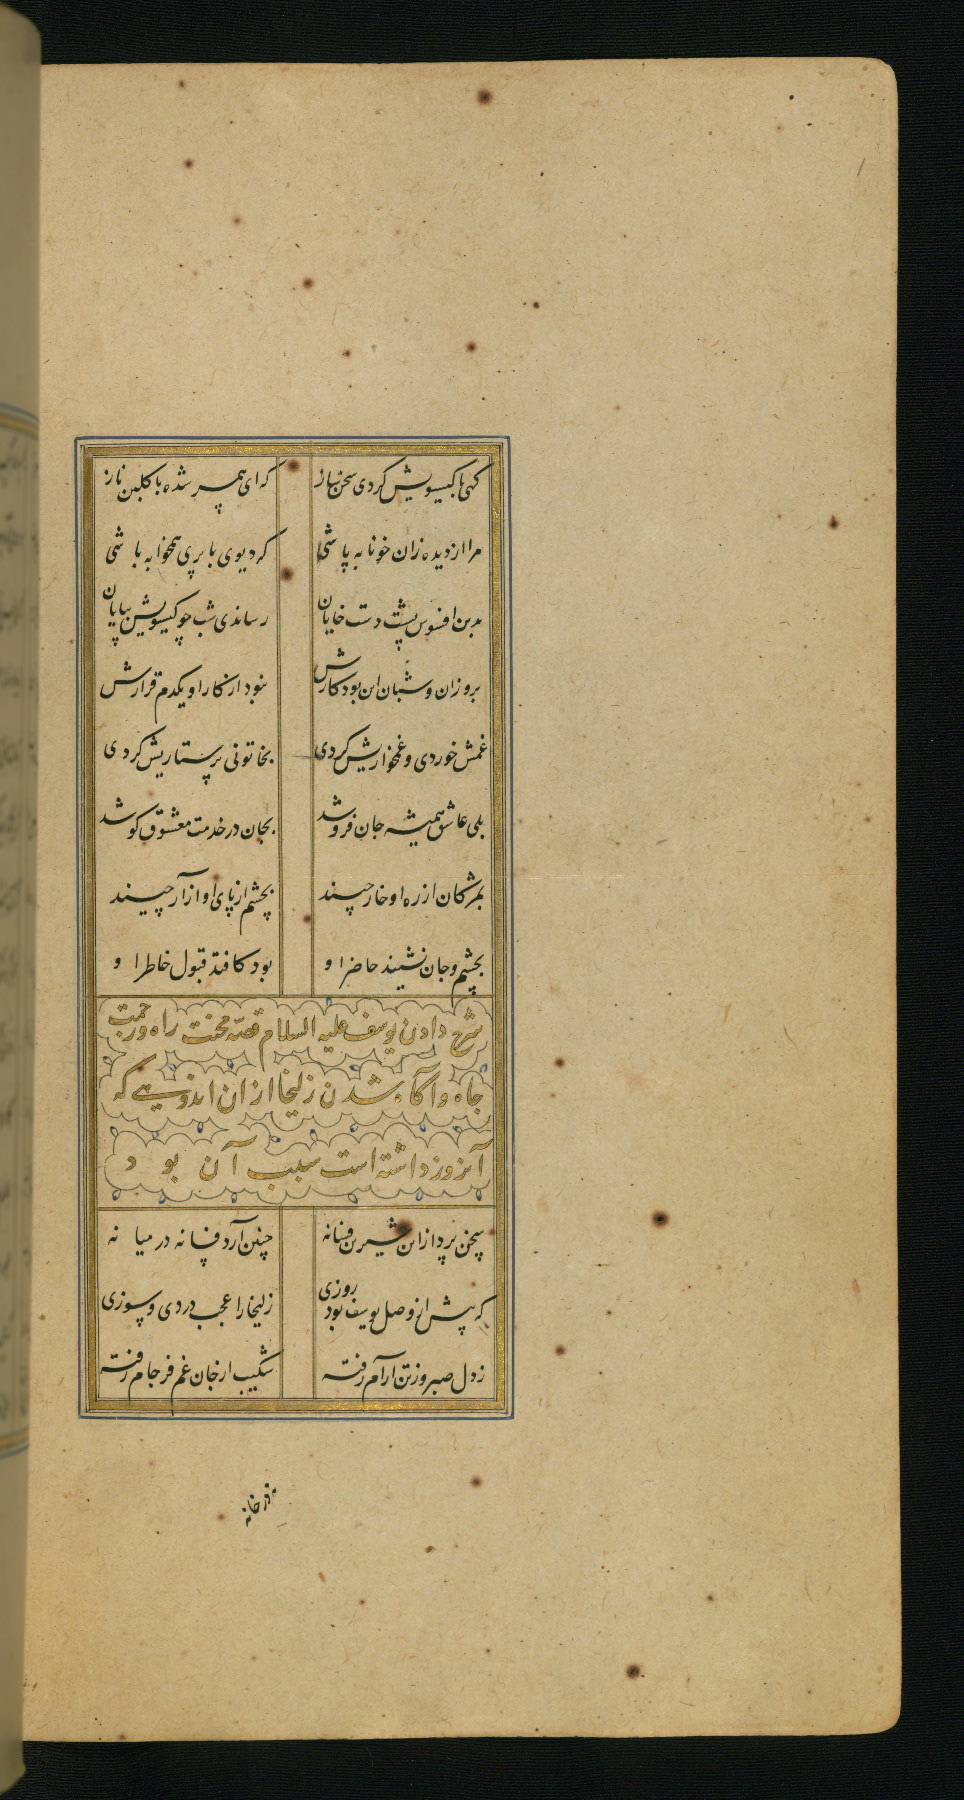 گهی با گیسویش کردی سخن ساز که ای همسر شده با گلبن ناز
مرا از دیده زان خونابه پاشی که دیوی با پری همخوابه باشی
بدین افسوس پشت دست خایان رساندی شب چو گیسویش بپایان
بروزان و شبان این بود کارش نبود از کار او یکدم قرارش
غمش خوردی و غمخواریش کردی بخاتونی پرستاریش کردی
بلی عاشق همیشه جان فروشد بجان در خدمت معشوق کوشد
بمژگان از ره او خار چیند بچشم از پای او آزار چیند
بچشم و جان نشیند حاضر او بود کافتد قبول خاطر او
شرح دادن یوسف علیه السلام قصّه محنت راه و زحمت
چاه و آگاه شدن زلیخا از آن اندوهی که
آنروز داشته است سبب آن بود
سخن پرداز این شیرین فسانه چنین آرد فسانه در میانه
که پیش از وصل یوسف بود روزی زلیخا را عجب دردی و سوزی
ز دل صبر و ز تن آرام رفته شکیب از جان غم فرجام رفته
نه در خانه